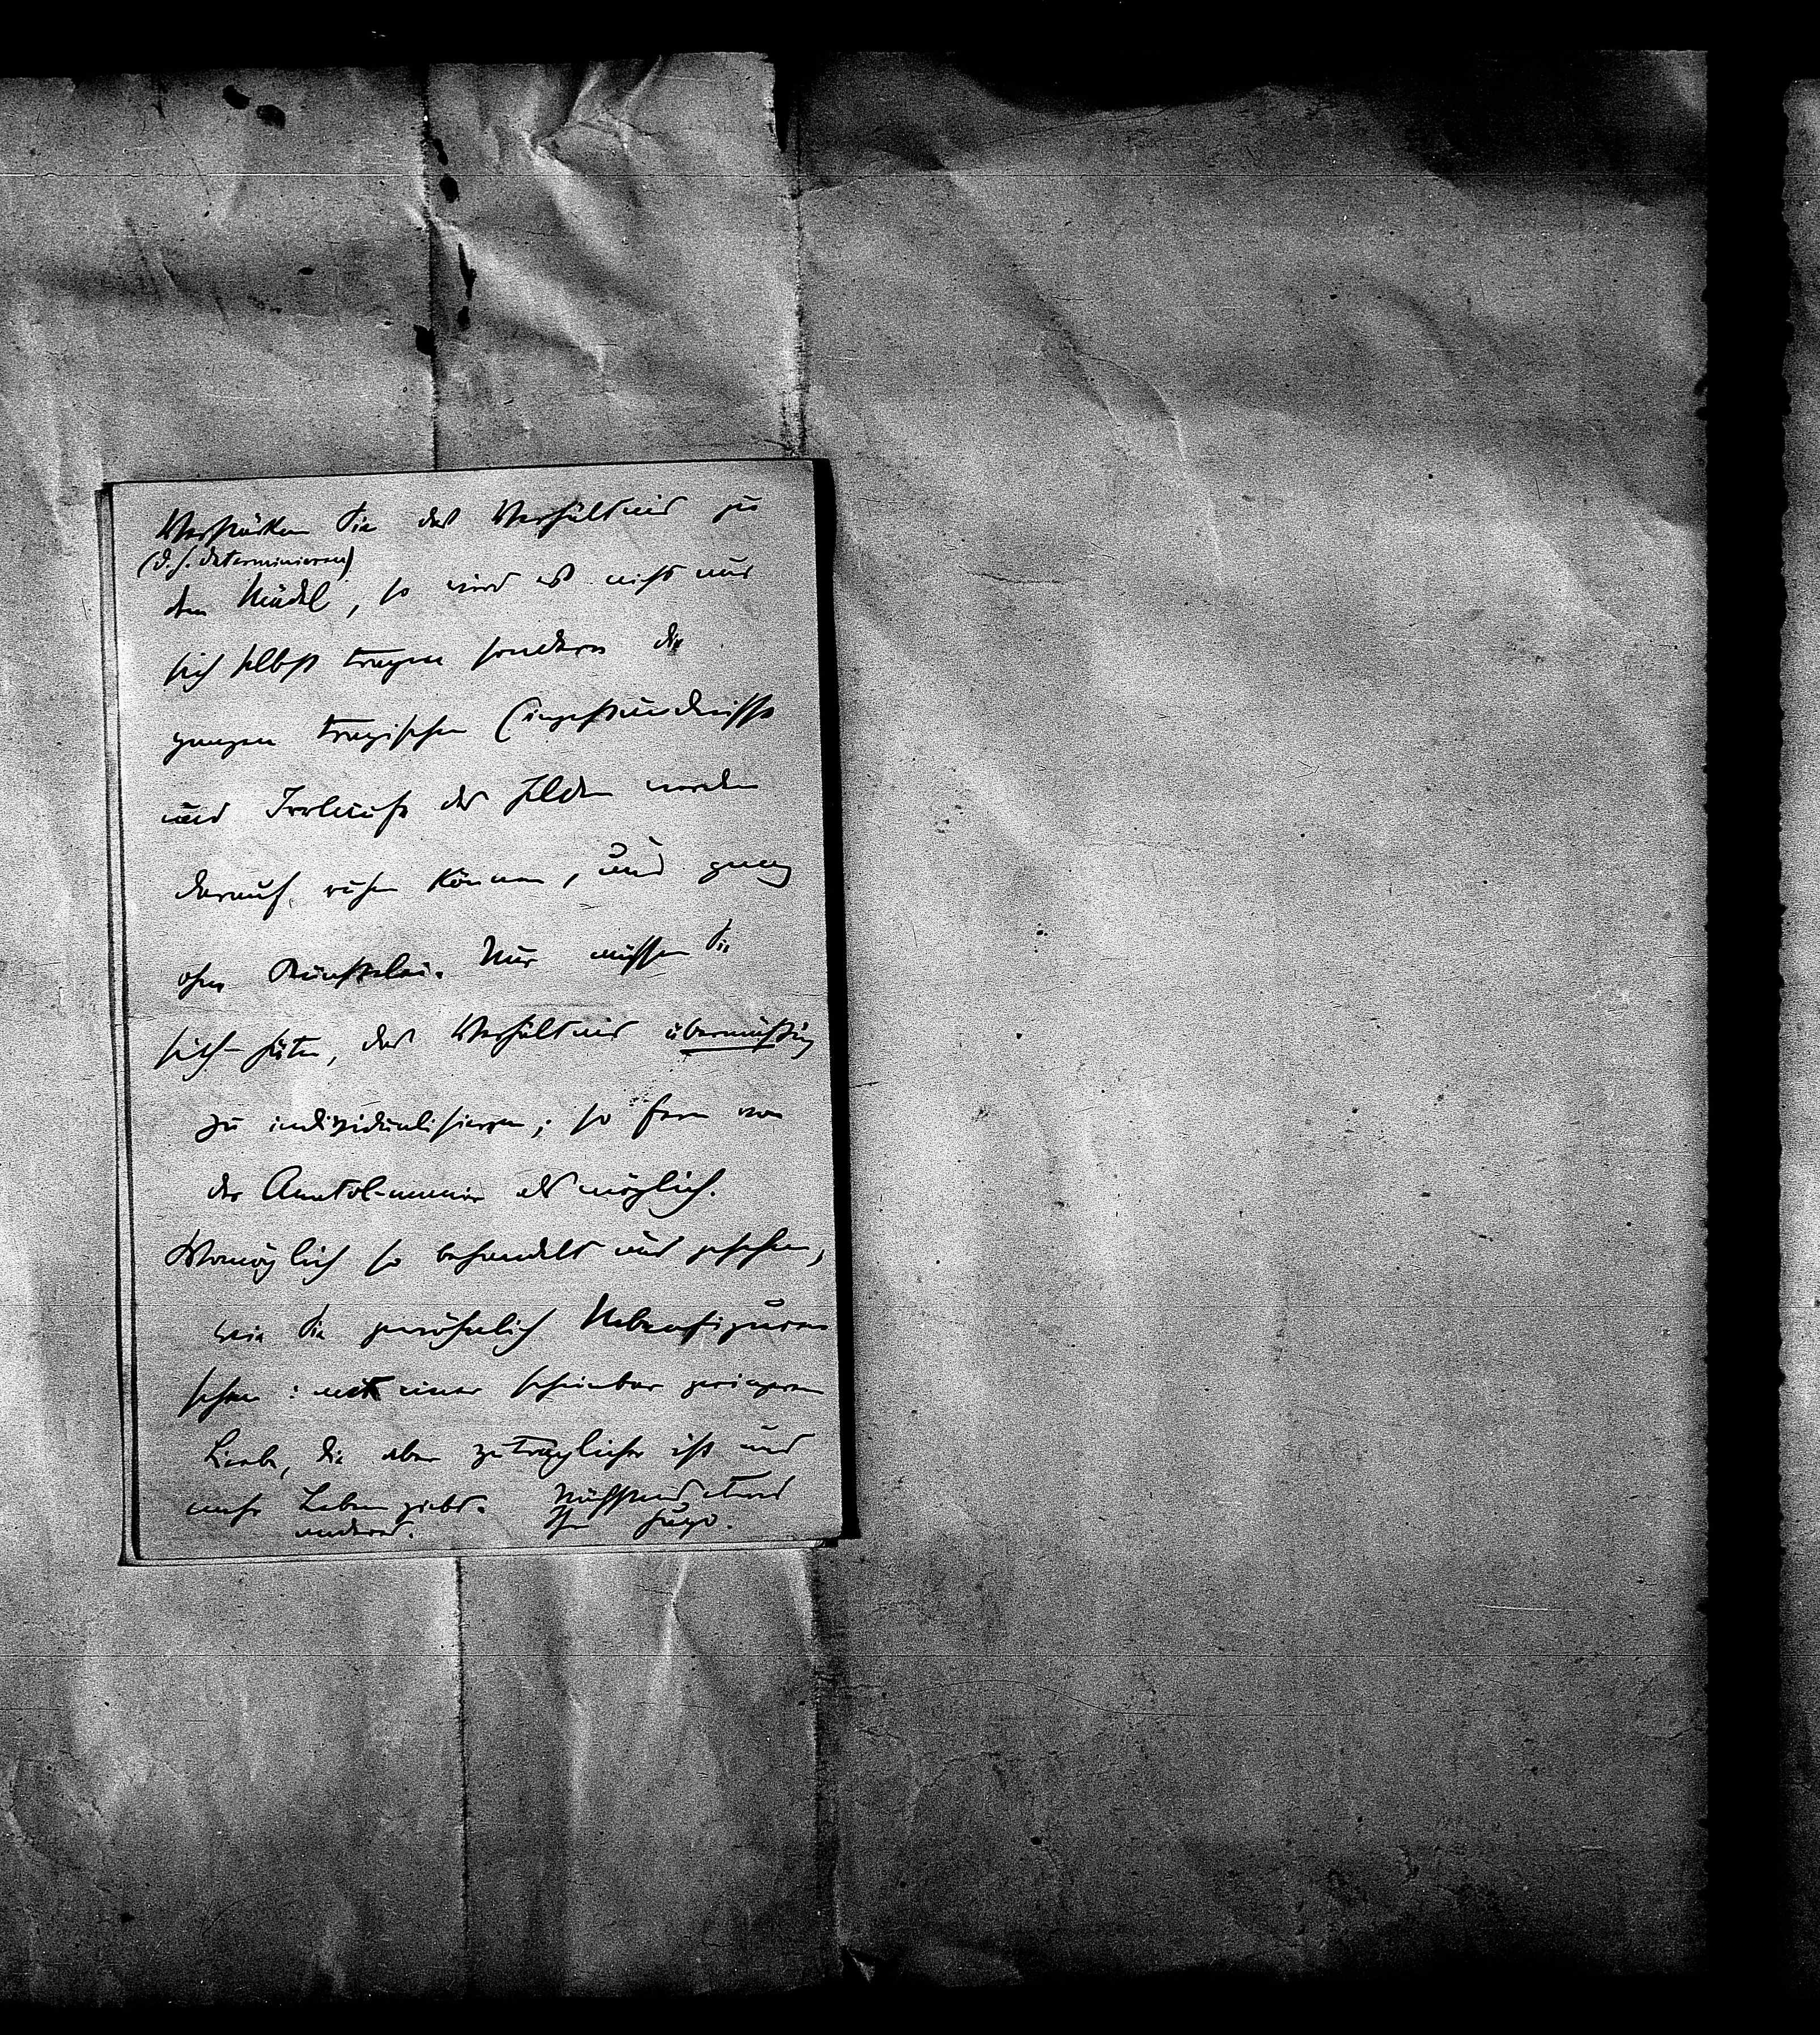 Verstärken Sie das Verhältnis zu
(d. h. determinieren)
dem Mädel, so wird es nicht nur
sich selbst tragen sondern die
ganzen tragischen Eingeständnisse
und Irrläufe des Helden werden
darauf ruhen können, und ganz
ohne Künstelei. Nur müssen Sie
sich hüten, das Verhältnis übermäßig
zu individualisieren; so fern von
der Anatol-manier als möglich.
Womöglich so behandelt und gesehen,
wie Sie gewöhnlich Nebenfiguren
sehen: mit einer scheinbar geringeren
Liebe, die aber zuträglicher ist und
mehr Leben giebt. Nächstens etwas
anderes. Ihr Hugo.